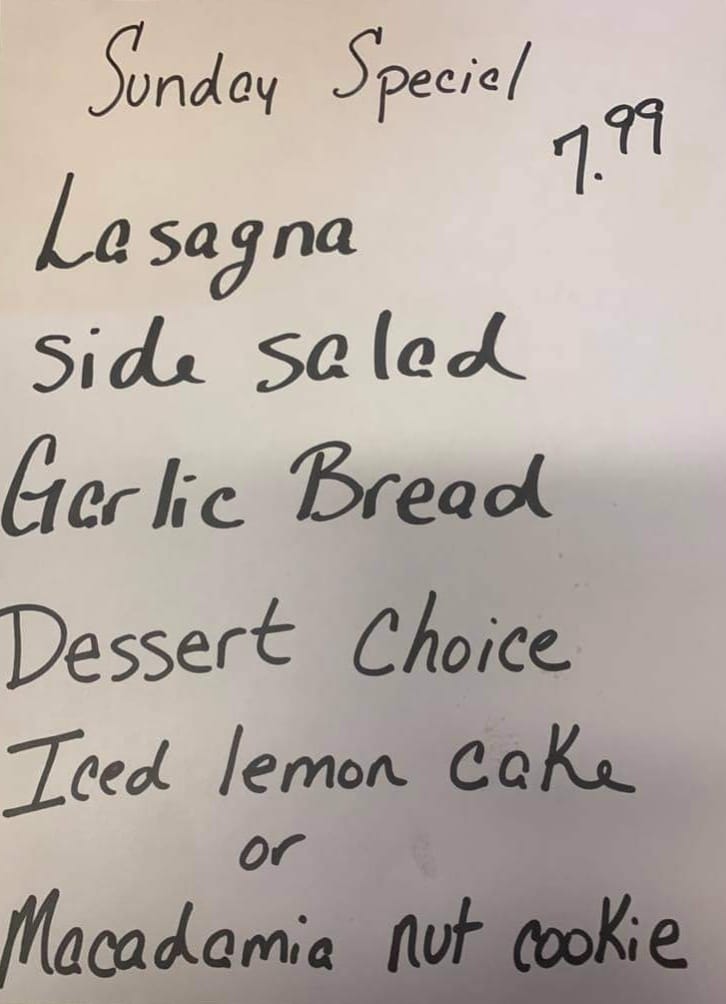 Sunday Special
7.99
Lasagna
side salad
Garlic Bread
Dessert Choice
Iced lemon cake
or
Macadamia nut cookie